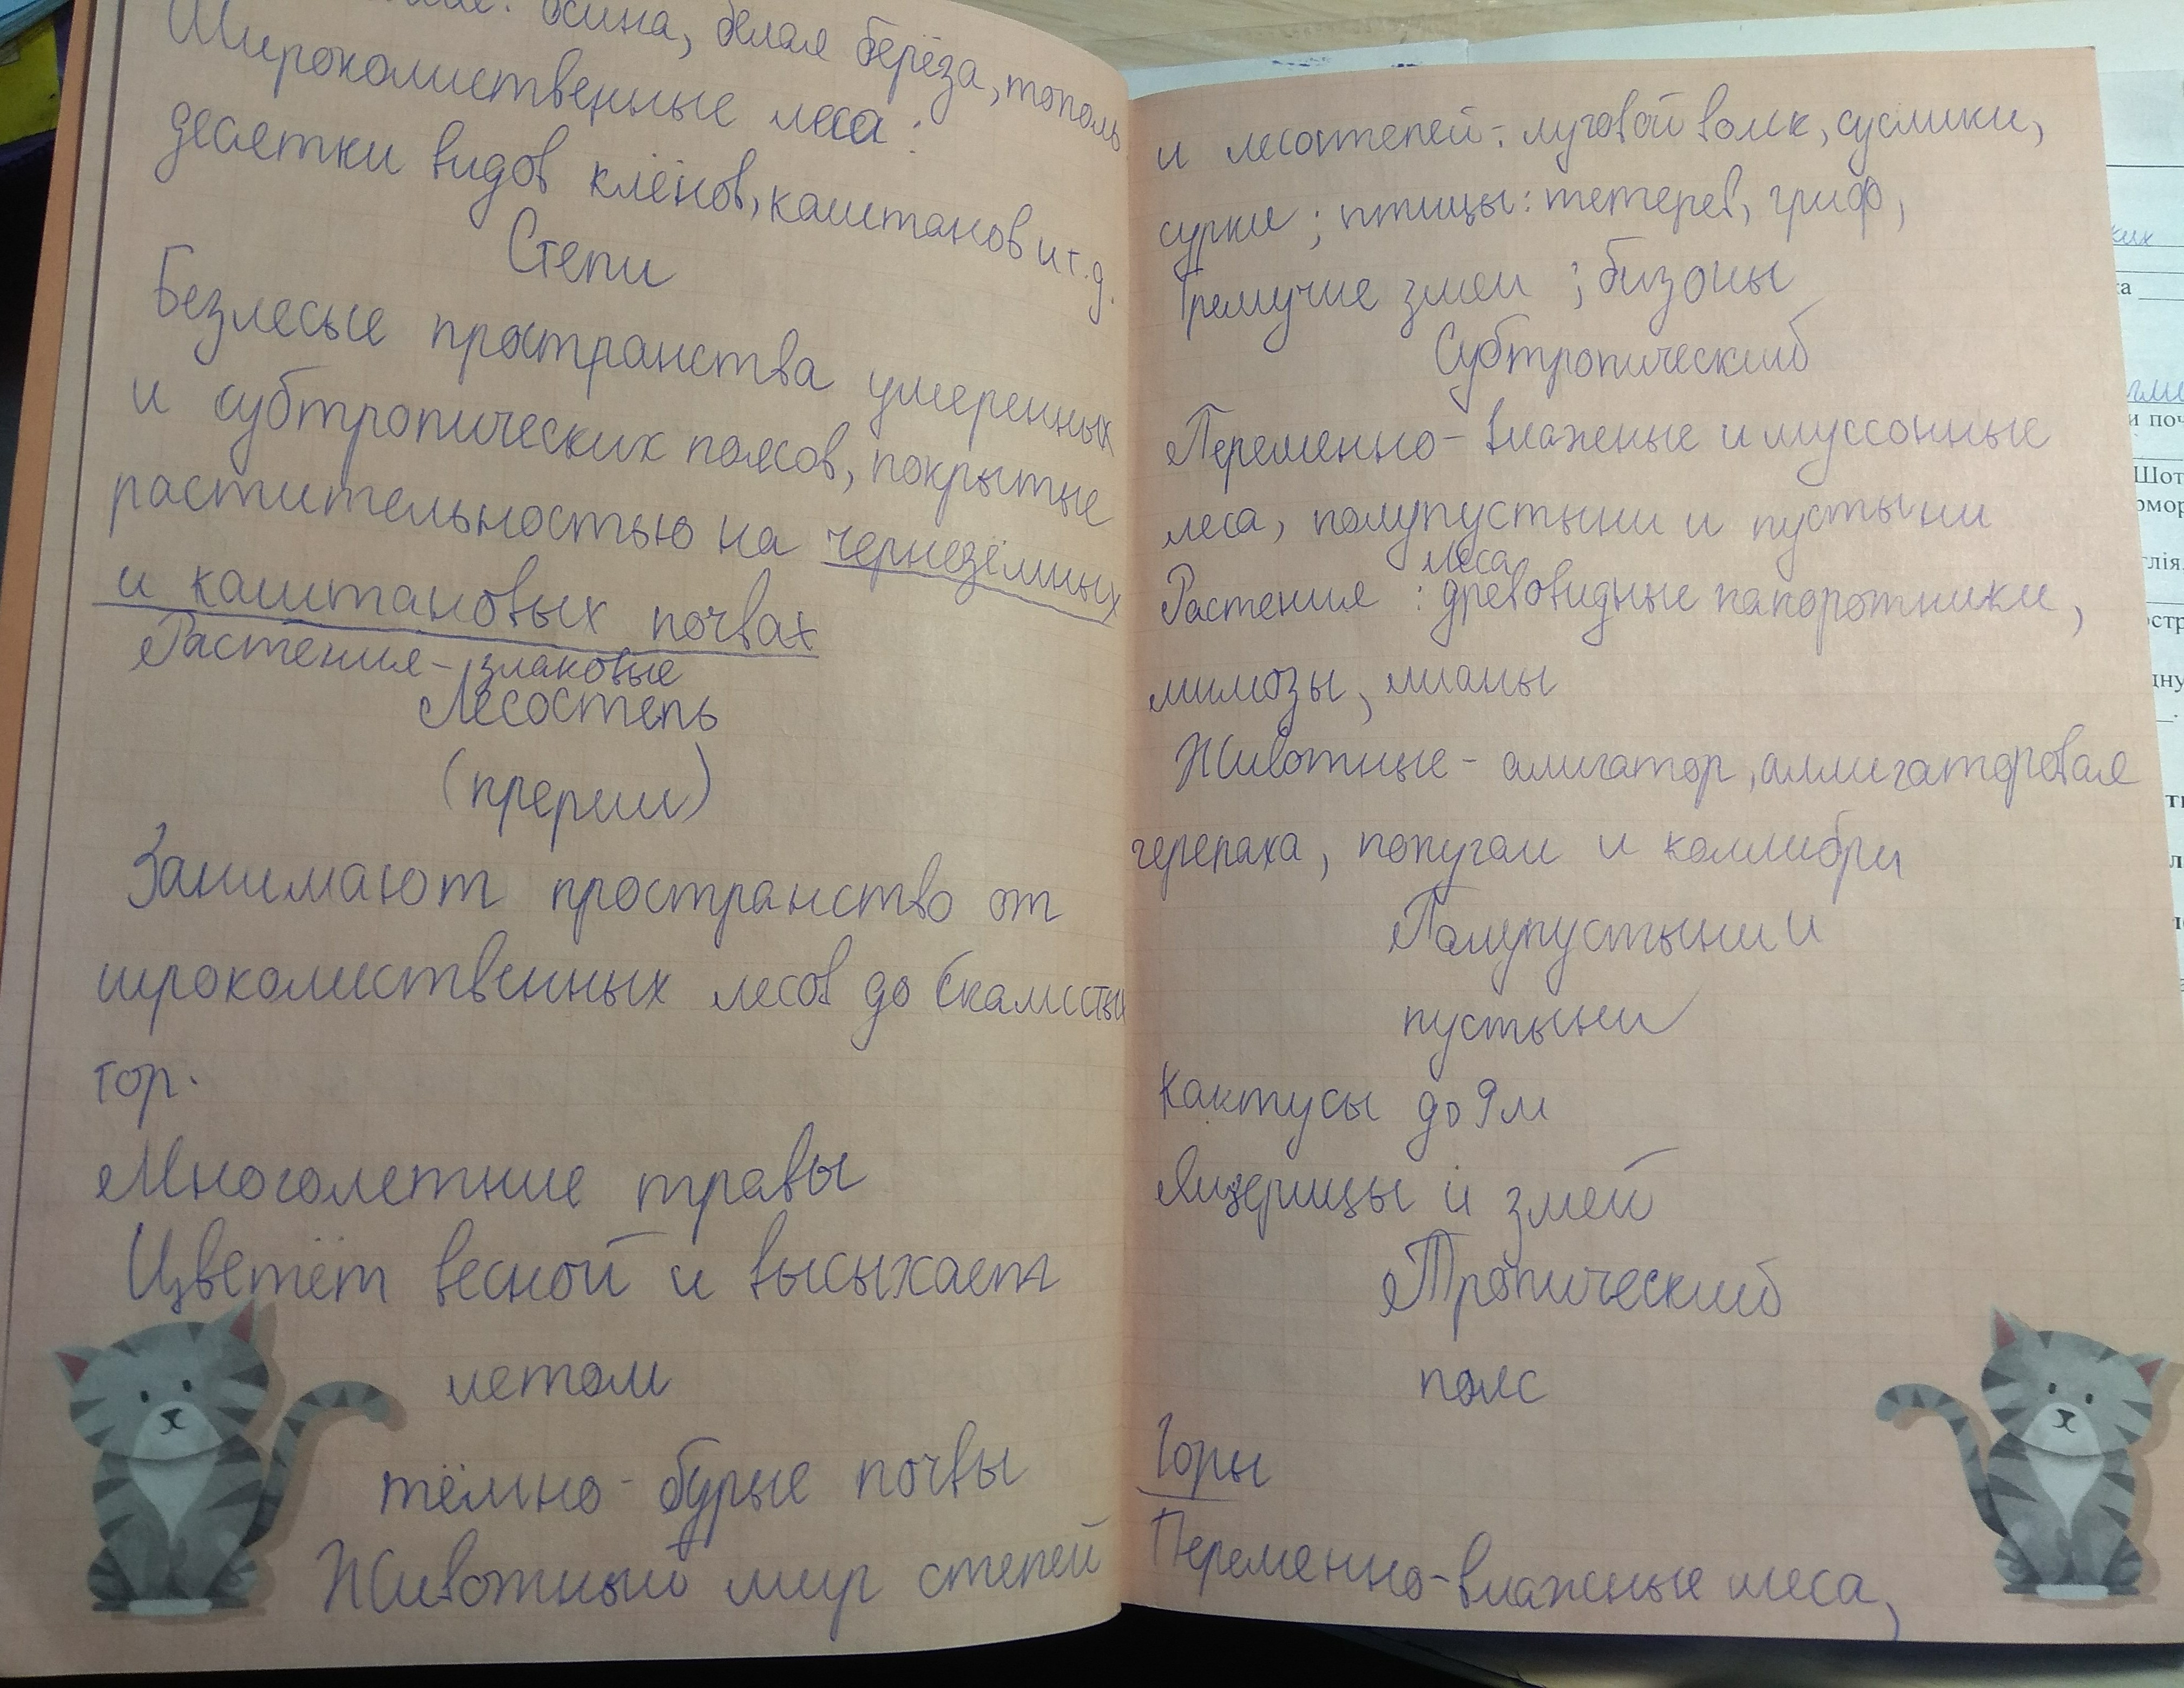 осина, белая берёза, тополь
Широколиственные леса:
десятки видов клёнов, каштанов и т.д.
Степи
Безлесые пространства умеренных
и субтропических поясов, покрытые
растительностью на чернозёмных
и каштановых почвах
Растения - злаковые
Лесостепь
(прерии)
Занимают пространство от
широколиственных лесов до Скалистых
гор.
Многолетние травы
Цветёт весной и высыхает
летом
тёмно-бурые почвы
Животный мир степей
и лесостепей: луговой волк, суслики,
сурки; птицы: тетерев, гриф,
Гремучие змеи; бизоны
Субтропический
Переменно-влажные и муссонные
леса, полупустыни и пустыни
леса
Растения: древовидные папоротники,
мимозы, лианы
Животные - алигатор, аллигаторовая
черепаха, попугаи и коллибри
Полупустыни и
пустыни
Кактусы до 9м
Ящерицы и змей
Тропический
пояс
Горы
Переменно-влажные леса,
ких
ка
и поч
Шот
рмор
глія
стр
дну